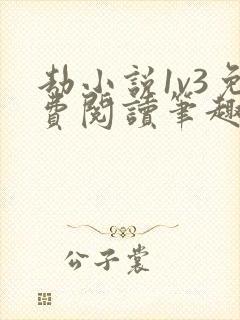 劫小説1v3免
費閱讀筆趣
公子裳